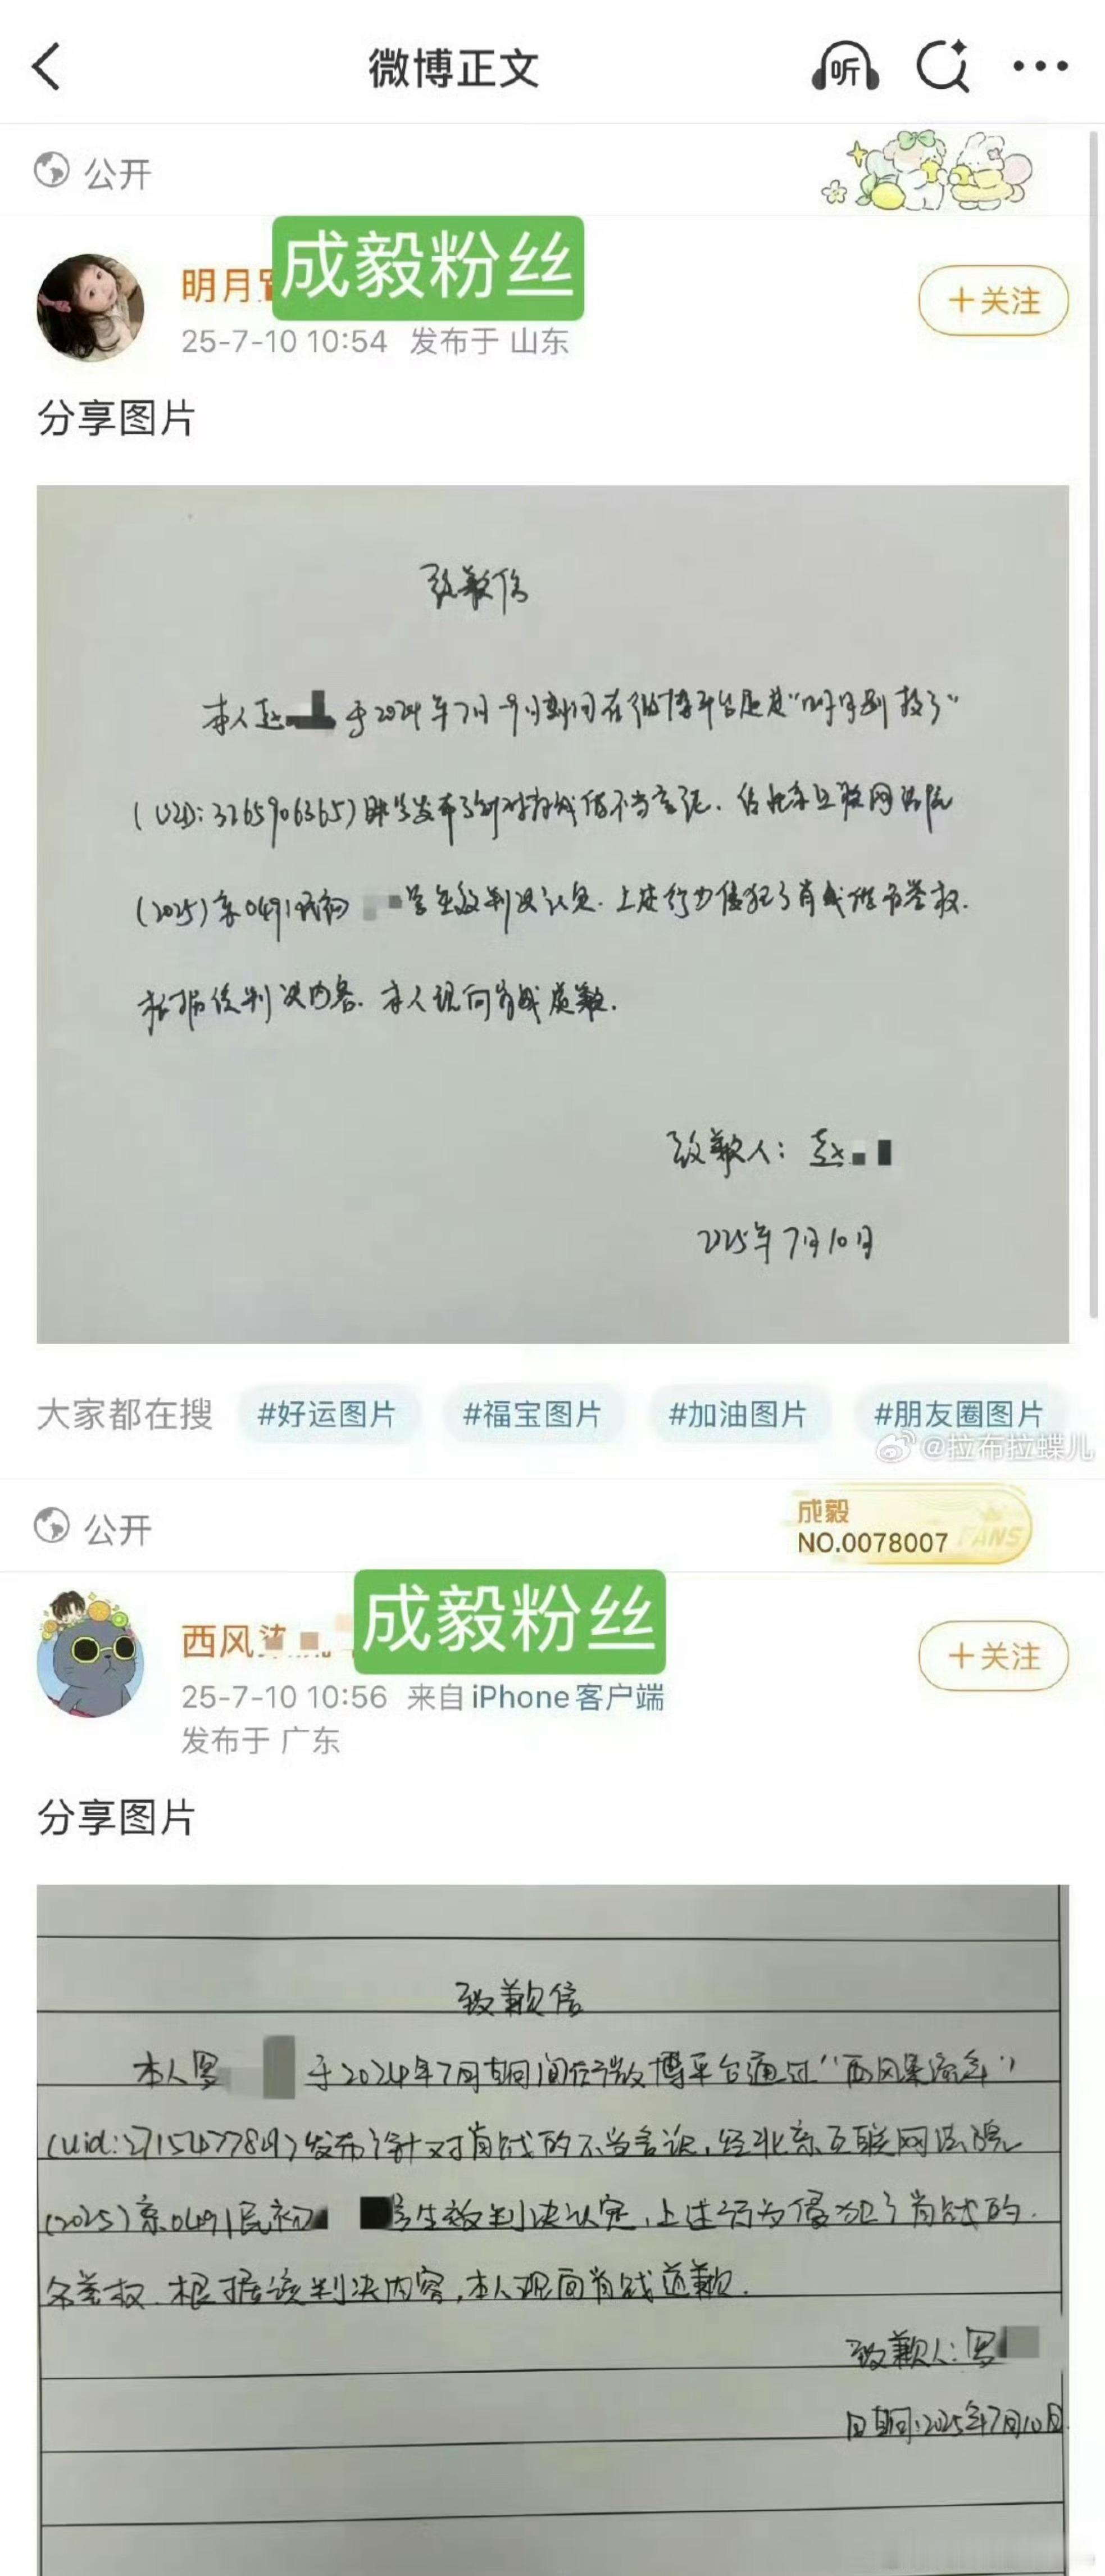 微博正文
听
公开
明月
成毅粉丝
+关注
25-7-10 10:54 发布于 山东
分享图片
致歉信
本人赵 于2024年7月 期间在微博平台通过“明月别 了”
(UID: 3265906365) 账号发布了针对肖战 不当言论. 经北京互联网法院
(2025)京0491民初 号生效判决认定. 上述行为侵犯了肖战 名誉权.
根据该判决内容. 本人现向肖战道歉.
致歉人: 赵
2025年7月10日
大家都在搜 #好运图片 #福宝图片 #加油图片 #朋友圈图片
@拉布拉蝶儿
公开
成毅
NO.0078007 FANS
西风
成毅粉丝
+关注
25-7-10 10:56 来自 iPhone客户端
发布于 广东
分享图片
致歉信
本人罗 于2024年7月期间 微博平台通过“西风 流年”
(uid: ) 发布 针对肖战的不当言论, 经北京互联网法院
(2025)京0491民初 号生效判决认定, 上述行为侵犯了肖战的
名誉权. 根据该判决内容, 本人现向肖战道歉.
致歉人: 罗
日期: 2025年7月10日